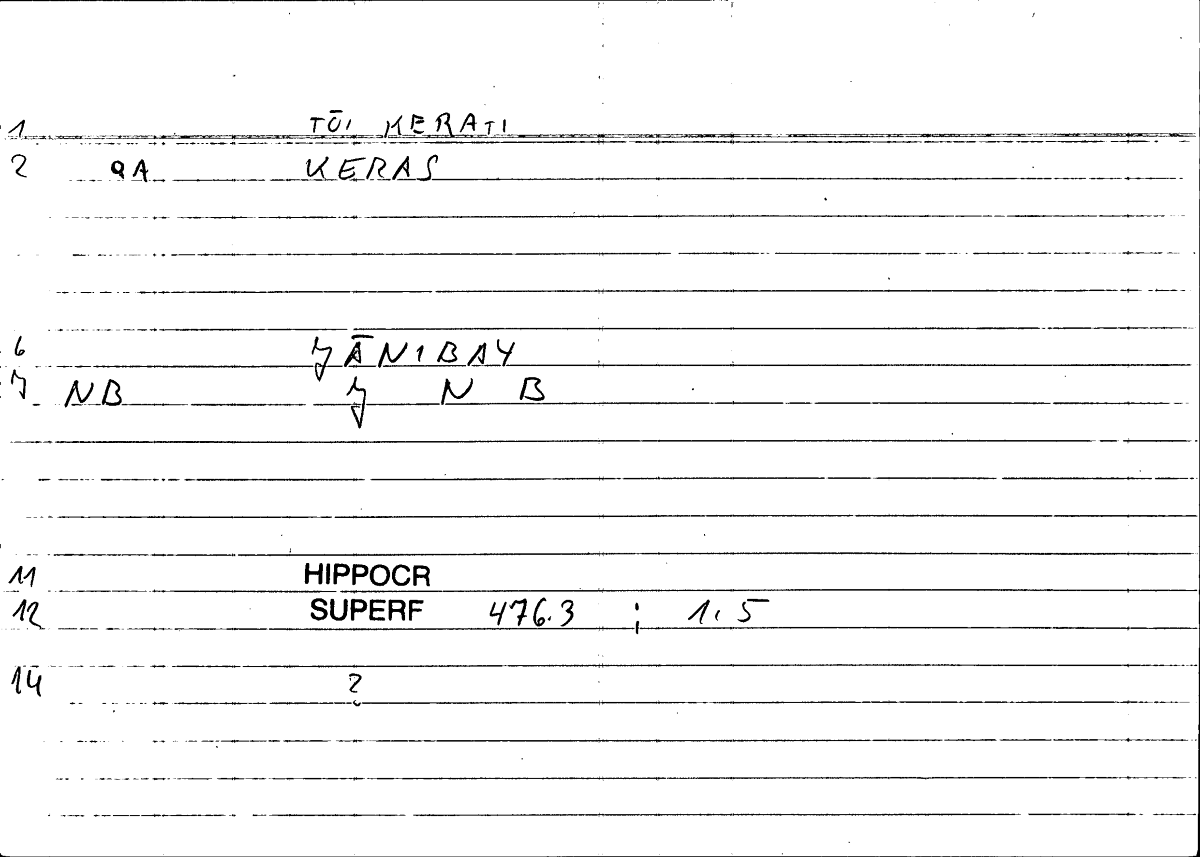 1 TŌI KERATI
2 QA KERAS
6 ǦĀNIBAY
7 NB Ǧ N B
11 HIPPOCR
12 SUPERF 476.3 ; 1.5
14 2